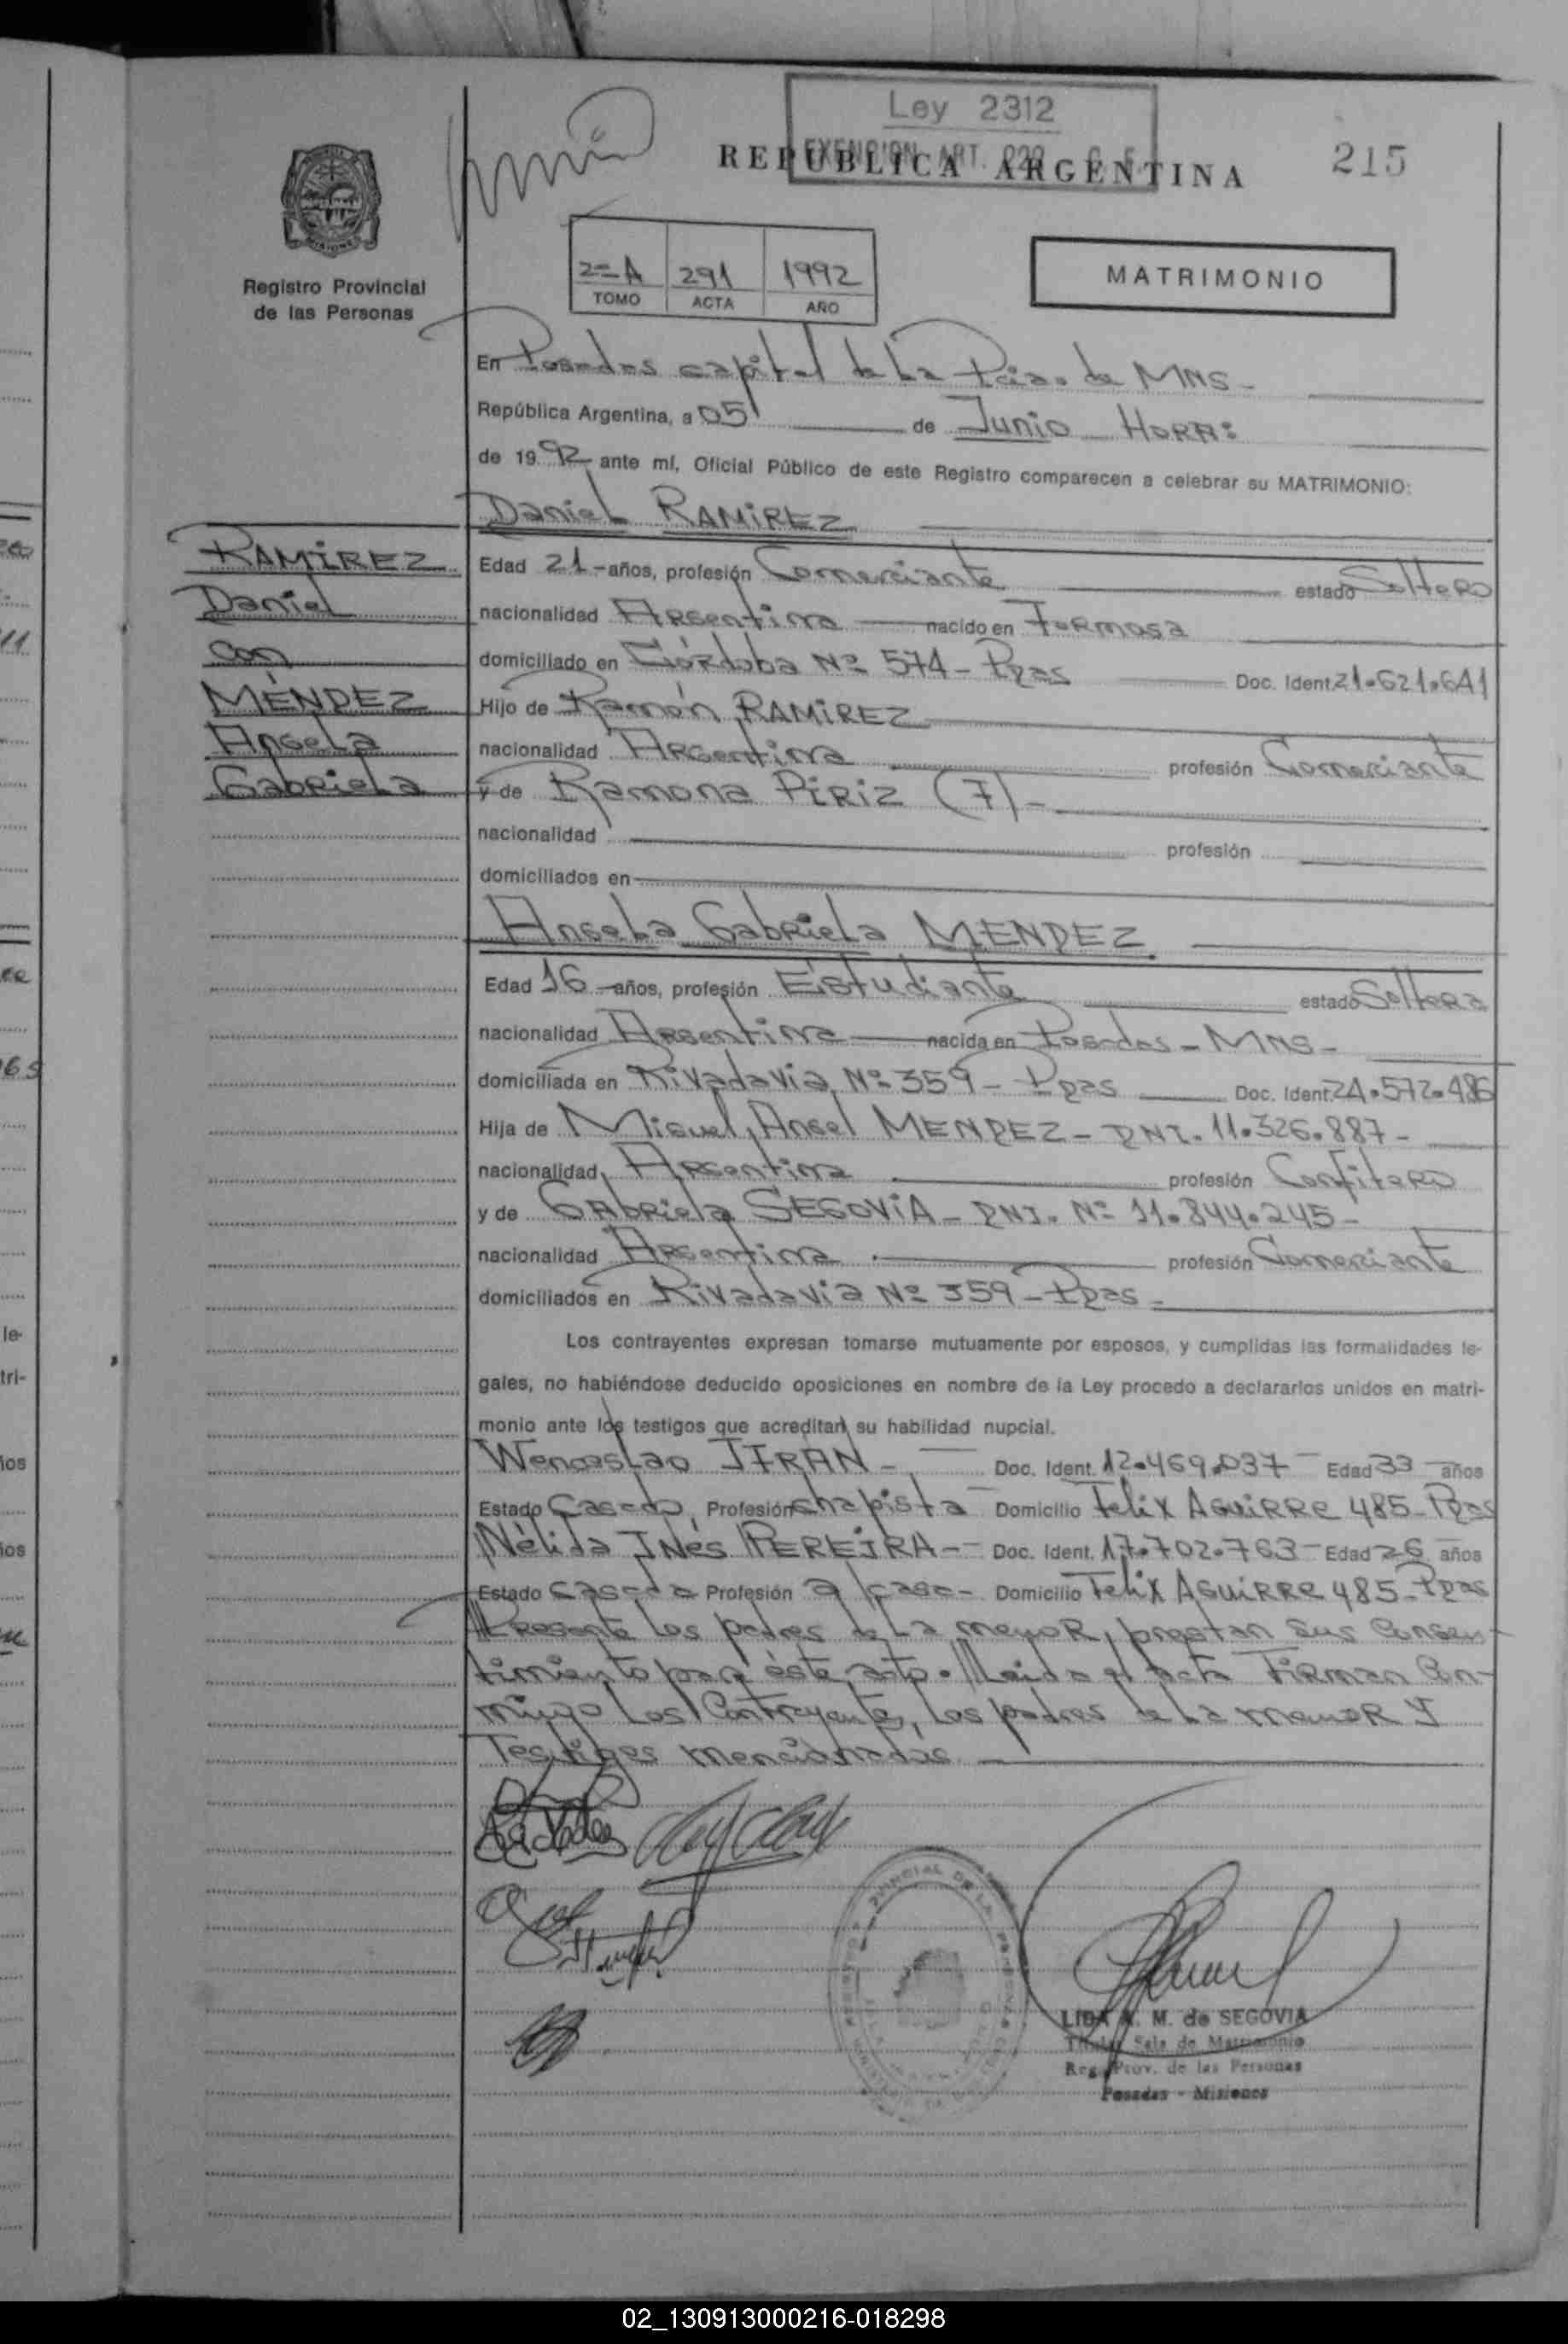 Ley 2312
EXENCION ART.
REPUBLICA ARGENTINA
215
2=A 291 1992
TOMO ACTA AÑO
MATRIMONIO
Registro Provincial
de las Personas
En Posadas capital de La Pcia. de MNS-
República Argentina, a 05 de Junio HORA:
de 1992 ante mí, Oficial Público de este Registro comparecen a celebrar su MATRIMONIO:
Daniel RAMIREZ
RAMIREZ
Daniel
con
MÉNDEZ
Angela
Gabriela
Edad 21-años, profesión Comerciante estado Soltero
nacionalidad Argentina nacido en Formosa
domiciliado en Córdoba Nº 574- Pdas Doc. Ident. 21.621.641
Hijo de Ramón RAMIREZ
nacionalidad Argentina profesión Comerciante
y de Ramona PIRIZ (F)-
nacionalidad profesión
domiciliados en
Angela Gabriela MENDEZ
Edad 16-años, profesión Estudiante estado Soltera
nacionalidad Argentina nacida en Posadas-MNS-
domiciliada en Rivadavia Nº 359- Pdas Doc. Ident. 24.572.486
Hija de Miguel Angel MENDEZ- DNI. 11.326.887-
nacionalidad Argentina profesión Confitero
y de Gabriela SEGOVIA- DNI. Nº 11.844.245-
nacionalidad Argentina profesión Comerciante
domiciliados en Rivadavia Nº 359- Pdas-
Los contrayentes expresan tomarse mutuamente por esposos, y cumplidas las formalidades le-
gales, no habiéndose deducido oposiciones en nombre de la Ley procedo a declararlos unidos en matri-
monio ante los testigos que acreditan su habilidad nupcial.
Wenceslao JIRAN- Doc. Ident. 12.469.037 Edad 33 años
Estado Casado, Profesión chapista Domicilio Felix Aguirre 485-Pdas
Nélida Inés PEREIRA-- Doc. Ident. 17.702.763 Edad 26 años
Estado Casada Profesión q/casa- Domicilio Felix Aguirre 485-Pdas
Presente Los padres de La menor, prestan sus Consen-
timiento para éste acto. Leida el acta Firman Con-
migo Los Contrayentes, Los padres de La menor Y
Testigos mencionados
LIDA M. de SEGOVIA
Titular Sala de Matrimonio
Reg. Prov. de las Personas
Posadas - Misiones
le-
tri-
ios
ios
02_130913000216-018298